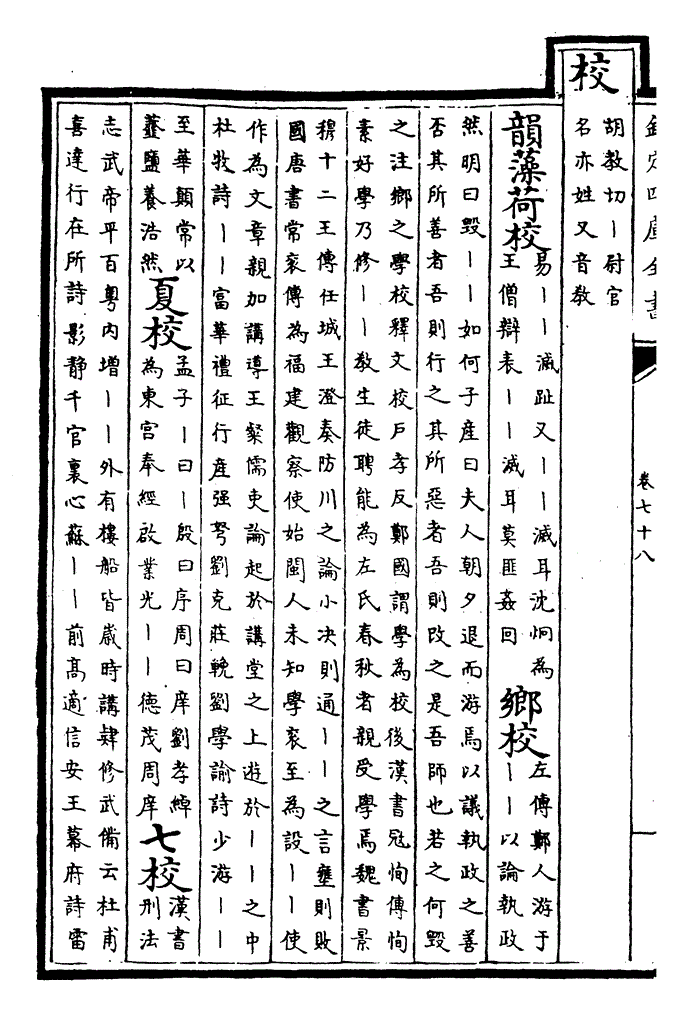 欽定四庫全書
卷七十八
校
胡教切丨尉官
名亦姓又音教
韻藻荷校
易丨丨滅趾又丨丨滅耳沈炯為
王僧辯表丨丨滅耳莫匪姦回
鄉校
左傳鄭人游于
丨丨以論執政
然明曰毁丨丨如何子產曰夫人朝夕退而游焉以議執政之善
否其所善者吾則行之其所惡者吾則改之是吾師也若之何毁
之注鄉之學校釋文校戶孝反鄭國謂學為校後漢書冦恂傳恂
素好學乃修丨丨教生徒聘能為左氏春秋者親受學焉魏書景
穆十二王傳任城王澄奏防川之論小决則通丨丨之言壅則敗
國唐書常衮傳為福建觀察使始閩人未知學衮至為設丨丨使
作為文章親加講導王粲儒吏論起於講堂之上遊於丨丨之中
杜牧詩丨丨富華禮征行產强弩劉克莊輓劉學諭詩少游丨丨
至華顛常以
虀鹽養浩然
夏校
孟子丨曰丨殷曰序周曰庠劉孝綽
為東宫奉經啟業光丨丨德茂周庠
七校
漢書
刑法
志武帝平百粤内增丨丨外有樓船皆歲時講肄修武備云杜甫
喜達行在所詩影静千官裏心蘇丨丨前髙適信安王幕府詩雷